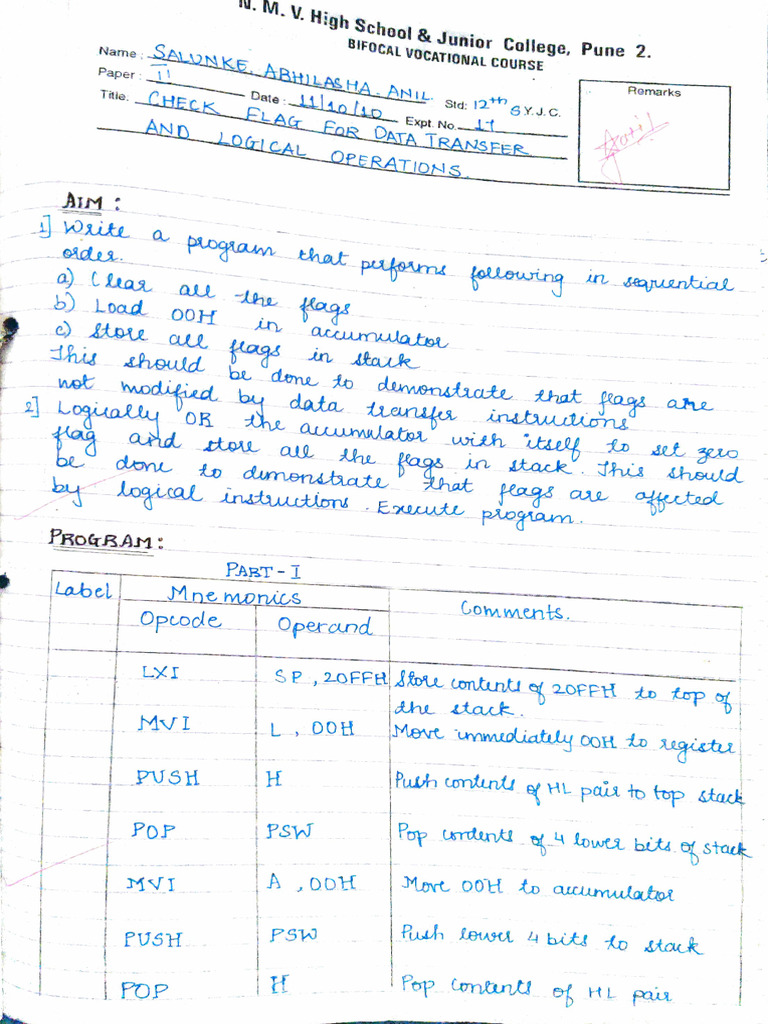 N. M. V. High School & Junior College, Pune 2.
BIFOCAL VOCATIONAL COURSE
Name : SALUNKE, ABHILASHA. ANIL.
Paper : II Date : 11/10/10 Std: 12th S.Y.J.C.
Title: CHECK FLAG FOR DATA TRANSFER Expt. No. 17
AND LOGICAL OPERATIONS.
Remarks
AIM :
1] Write a program that performs following in sequential
order.
a) Clear all the flags
b) Load 00H in accumulator
c) Store all flags in stack
This should be done to demonstrate that flags are
not modified by data transfer instructions
2] Logically OR the accumulator with itself to set zero
flag and store all the flags in stack. This should
be done to demonstrate that flags are affected
by logical instructions. Execute program.
PROGRAM :
PART - I
Label Mnemonics Comments.
Opcode Operand
LXI SP, 20FFH Store contents of 20FFH to top of
the stack.
MVI L, 00H Move immediately 00H to register
PUSH H Push contents of HL pair to top stack
POP PSW Pop contents of 4 lower bits of stack
MVI A, 00H Move 00H to accumulator
PUSH PSW Push lower 4 bits to stack
POP H Pop contents of HL pair